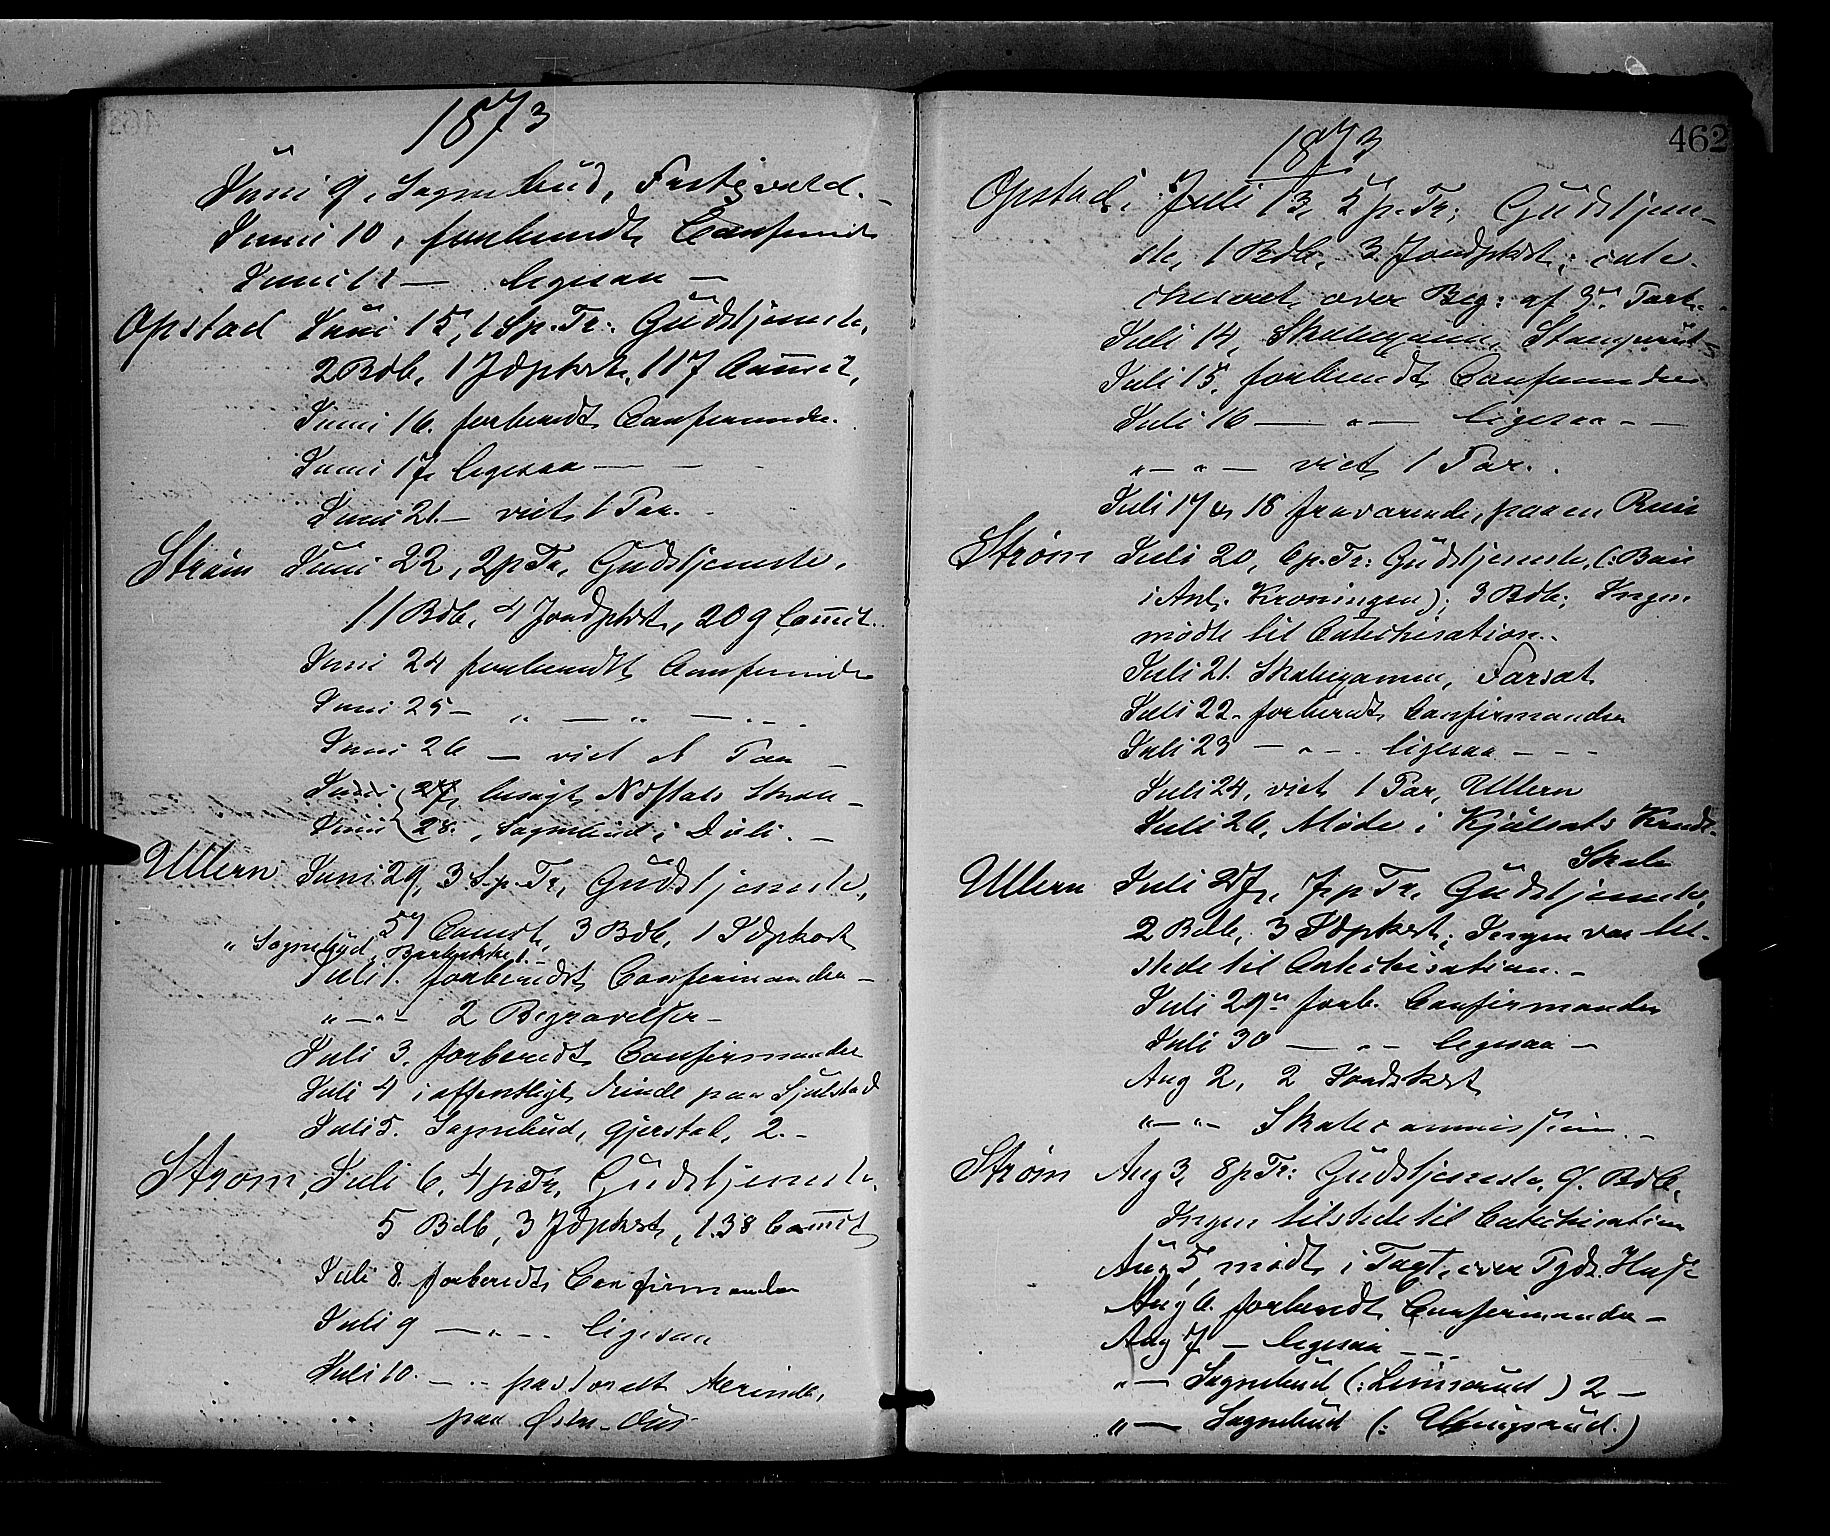 1873
Juni 9, Sognebud,
Juni 10, forberedt, Confirmde
Juni 11 — ligesaa —
Opstad Juni 15, 1 S. p. Tr: Gudstjeneste,
2 Bdb, 1 Jdpkst, 117 Com̅ūt,
Juni 16. forberedt, Confirmande.
Juni 17, ligesaa — —
Juni 21. — viet, 1 Par. -
Strøm Juni 22, 2 p Tr, Gudstjeneste,
11 Bdb, 4 Jordpkst, 209 Com̅ut.
Juni 24 forberedt, Confirmde
Juni 25 — „ — „ — . - .
Juni 26 — viet et Par —
Juni 27, besøgt,
Juni 28., Sognebud i Duli. —
Ullern Juni 29, 3 S. p. Tr, Gudstjeneste,
57 Comūt, 3 Bdb, 1 Jdpkast
„ Sognebud,
Juli 1. forberedt, Confirmander —
„ — „ — 2 Begravelser —
Juli 3. forberedt, Confirmander
Juli 4 i offentligt Ærinde paa
Juli 5. Sognebud, Gjerstad, 2. -
Strøm, Juli 6, 4 p Tr, Gudstjeneste,
5 Bdb, 3 Jdpkst, 138 Com̅ut
Juli 8. forberedt, Confirmander
Juli 9 — „ - - ligesaa
Juli 10. — .. pastoralt Ærinde,
paa
462
1873
Opstad, Juli 13, 5 p. Tr; Gudstjene-
ste, 1 Bdb, 3 Jordpkst; cate-
chiseret over Beg: af 3die Part.
Juli 14, Skoleexamen,
Juli 15, forberedt Confirmander
Juli 16 — „ — ligesaa - —
„ — „ — viet, 1 Par.
Juli 17 & 18 fraværende, paa en Reise
Strøm Juli 20, 6 p. Tr: Gudstjeneste, (: Bøn
i Anl. Kroningen); 3 Bdb; Ingen
mødte til Catechisation. -
Juli 21. Skoleexamen, Farsæt
Juli 22. forberedt, Confirmander
Juli 23 — „ - . ligesaa - - -
Juli 24, viet 1 Par, Ullern
Juli 26, Møde i Kjølsæts Kreds-
Skole
Ullern Juli 27, 7 p Tr, Gudstjeneste,
2 Bdb, 3 Jdpkst; Ingen var til-
stede til Catechisation. -
Juli 29de forb. Confirmander
Juli 30 — „ - ligesaa —
Aug 2, 2 Jordskst
„ — „ - Skolecommission. —
Strøm Aug 3, 8 p Tr: Gudstjeneste, 9 Bdb,
Ingen tilstede til Catechisation
Aug 5, mødt, i Taxt, over
Aug 6. forberedt Confirmander —
Aug 7 — ligesaa - - -
„ — Sognebud (: ) 2 —
„ — Sognebud (: )